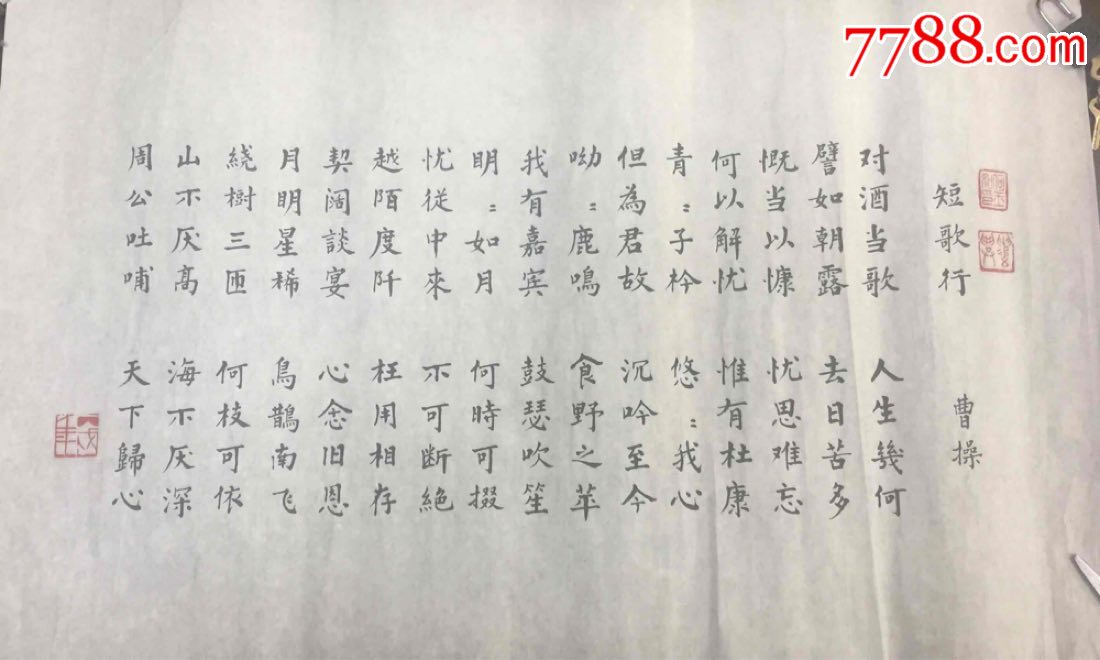 7788.com
短歌行 曹操
对酒当歌 人生幾何
譬如朝露 去日苦多
慨当以慷 忧思难忘
何以解忧 惟有杜康
青：子衿 悠：我心
但為君故 沉吟至今
呦：鹿鳴 食野之苹
我有嘉宾 鼓瑟吹笙
明：如月 何時可掇
忧從中來 不可断絕
越陌度阡 枉用相存
契阔談宴 心念旧恩
月明星稀 烏鵲南飞
繞樹三匝 何枝可依
山不厌高 海不厌深
周公吐哺 天下歸心